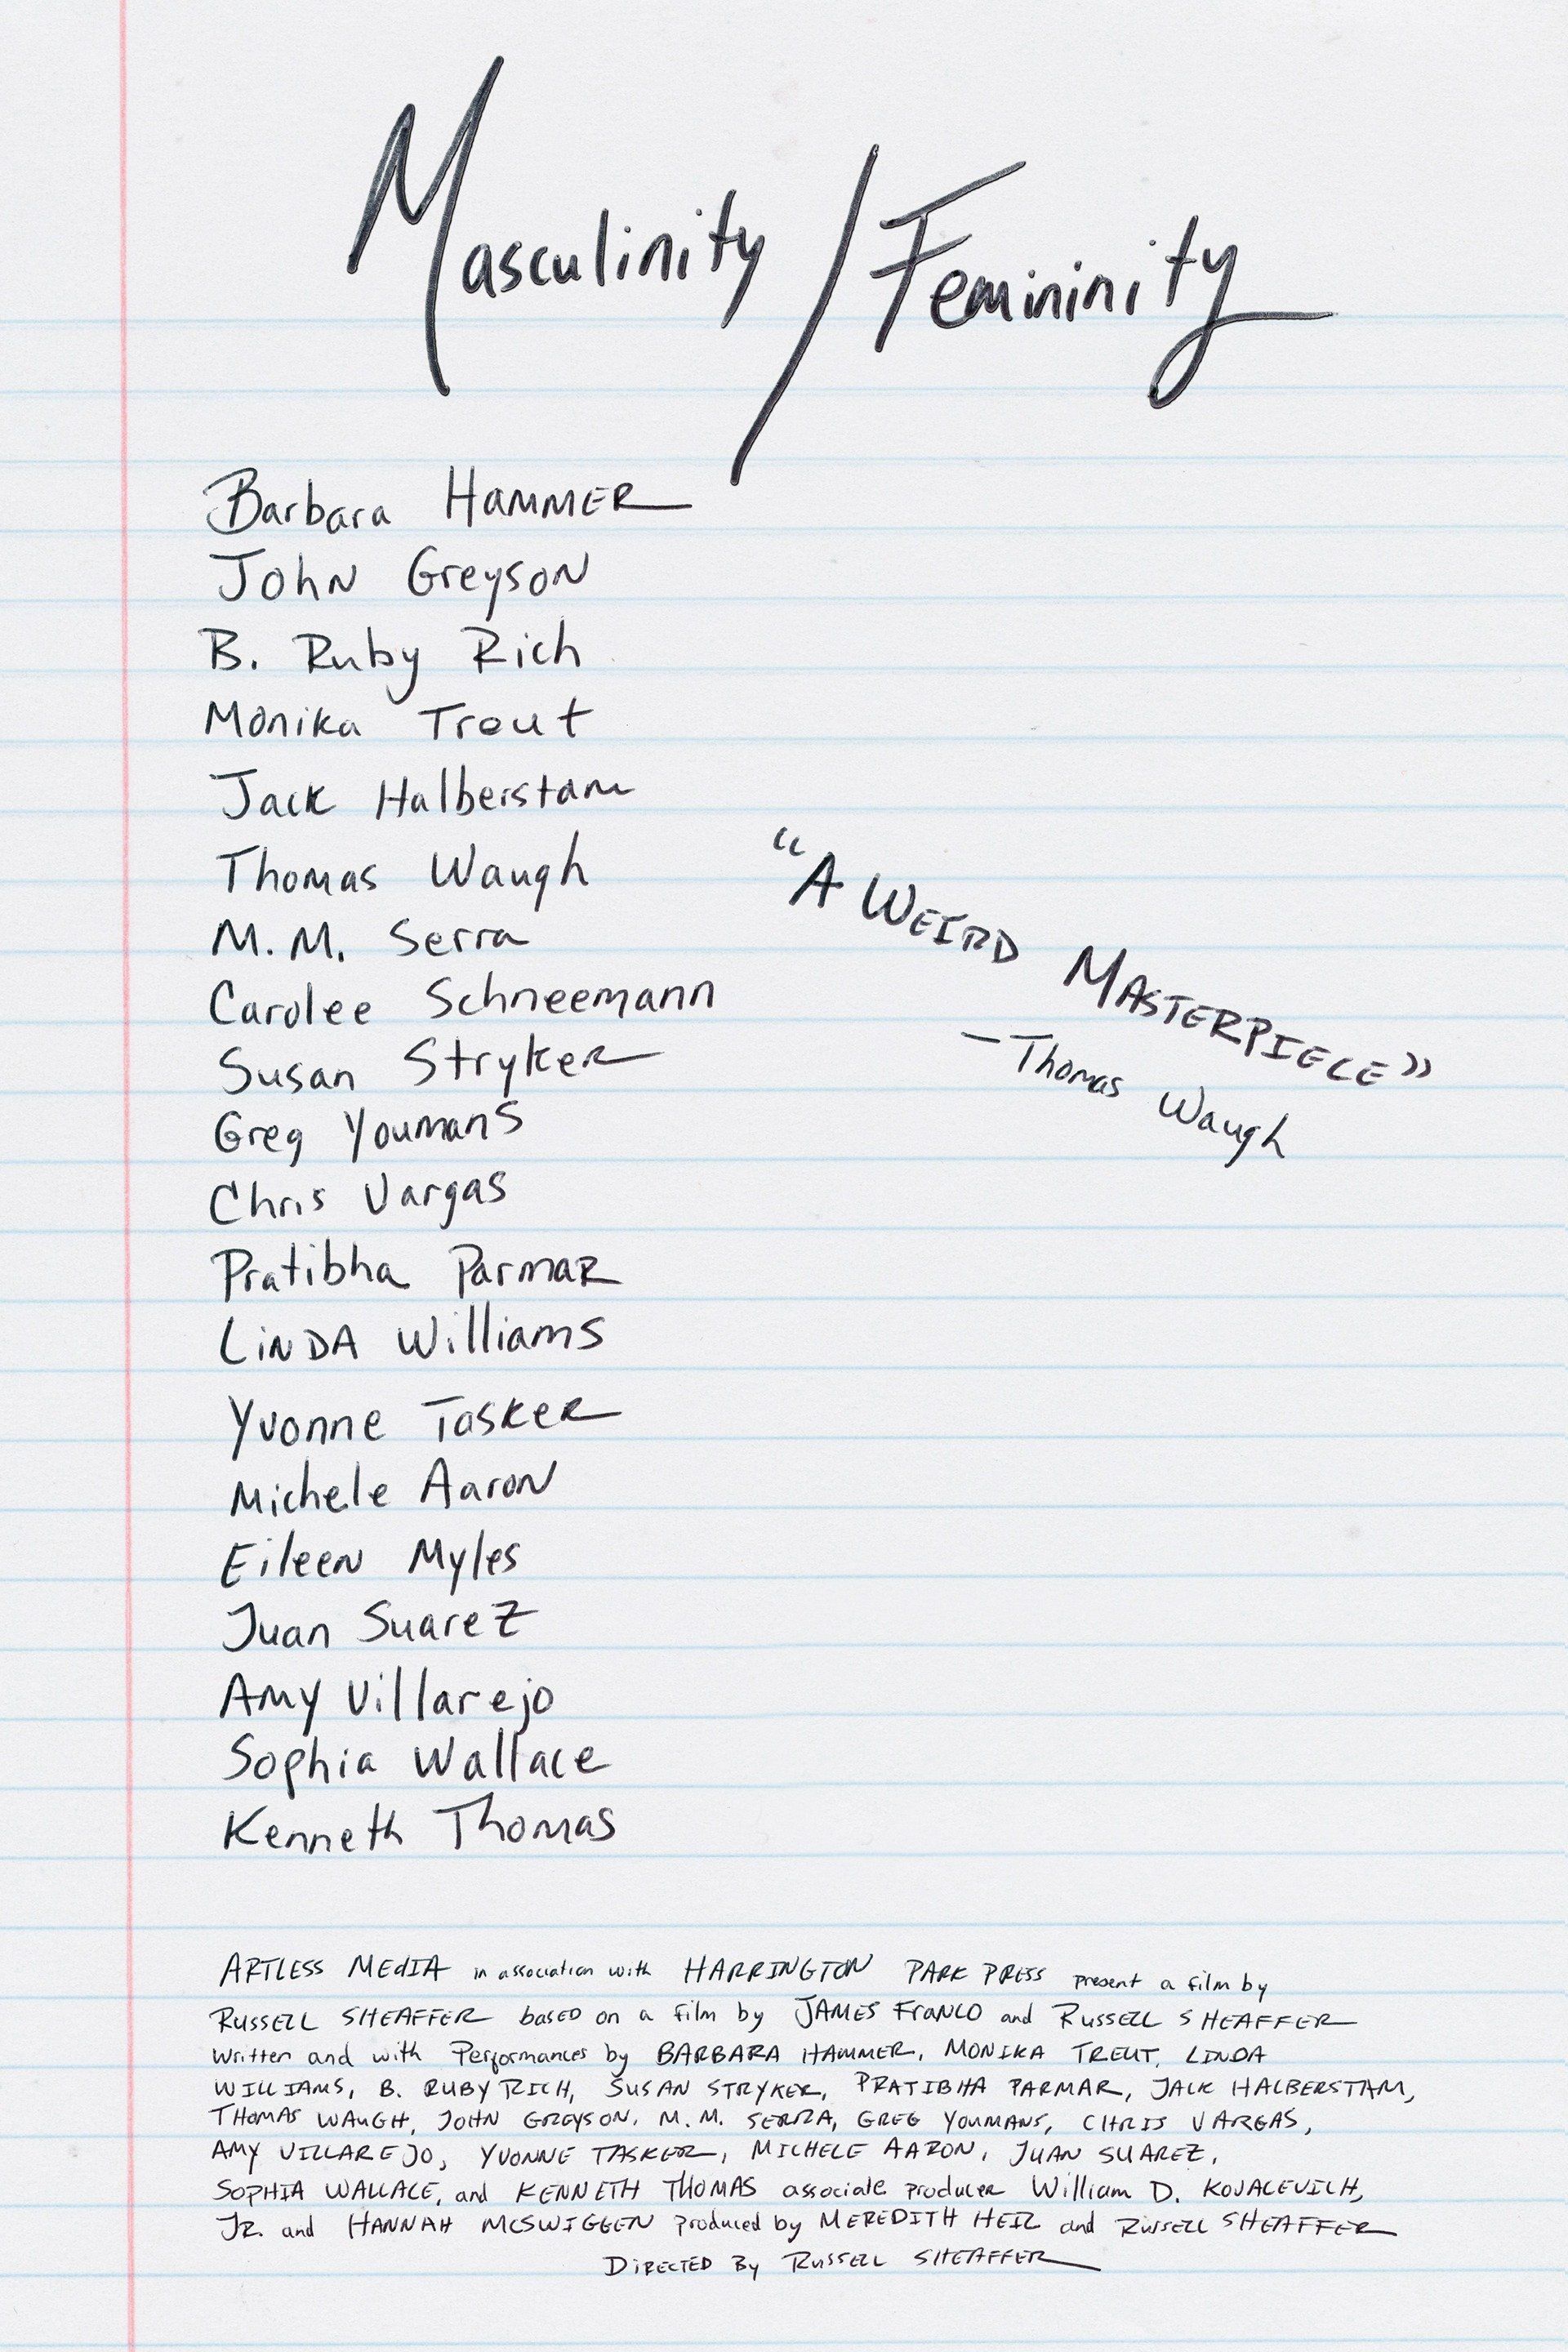 Masculinity / Femininity
Barbara HAMMER
John Greyson
B. Ruby Rich
Monika Treut
Jack Halberstam
Thomas Waugh
M.M. Serra
Carolee Schneemann
Susan Stryker
Greg Youmans
Chris Vargas
Pratibha Parmar
LiNDA Williams
Yvonne Tasker
Michele Aaron
Eileen Myles
Juan Suarez
Amy Villarejo
Sophia Wallace
Kenneth Thomas
“A WEIRD MASTERPIECE”
– Thomas Waugh
ARTLESS MEdIA in association with HARRINGTON PARK PRESS present a film by
RUSSELL SHEAFFER based on a film by JAMES FRANCO and RUSSELL SHEAFFER
written and with Performances by BARBARA HAMMER, MONIKA TREUT, LINDA
WILLIAMS, B. RUBY RICH, SUSAN STRYKER, PRATIBHA PARMAR, JACK HALBERSTAM,
THOMAS WAUGH, JOHN GREYSON, M. M. SERRA, GREG YOUMANS, CHRIS VARGAS,
AMY VILLAREJO, YVONNE TASKER, MICHELE AARON, JUAN SUAREZ,
SOPHIA WALLACE, and KENNETH THOMAS associate producer William D. KOVACEVICH,
JR. and HANNAH MCSWIGGEN produced by MEREDITH HEIL and RUSSELL SHEAFFER
DIRECTED By RUSSELL SHEAFFER